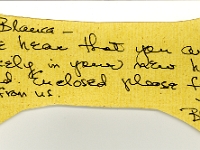 Blanca —
e hear that you a
ely in your new h
d. Enclosed please f
from us.
B